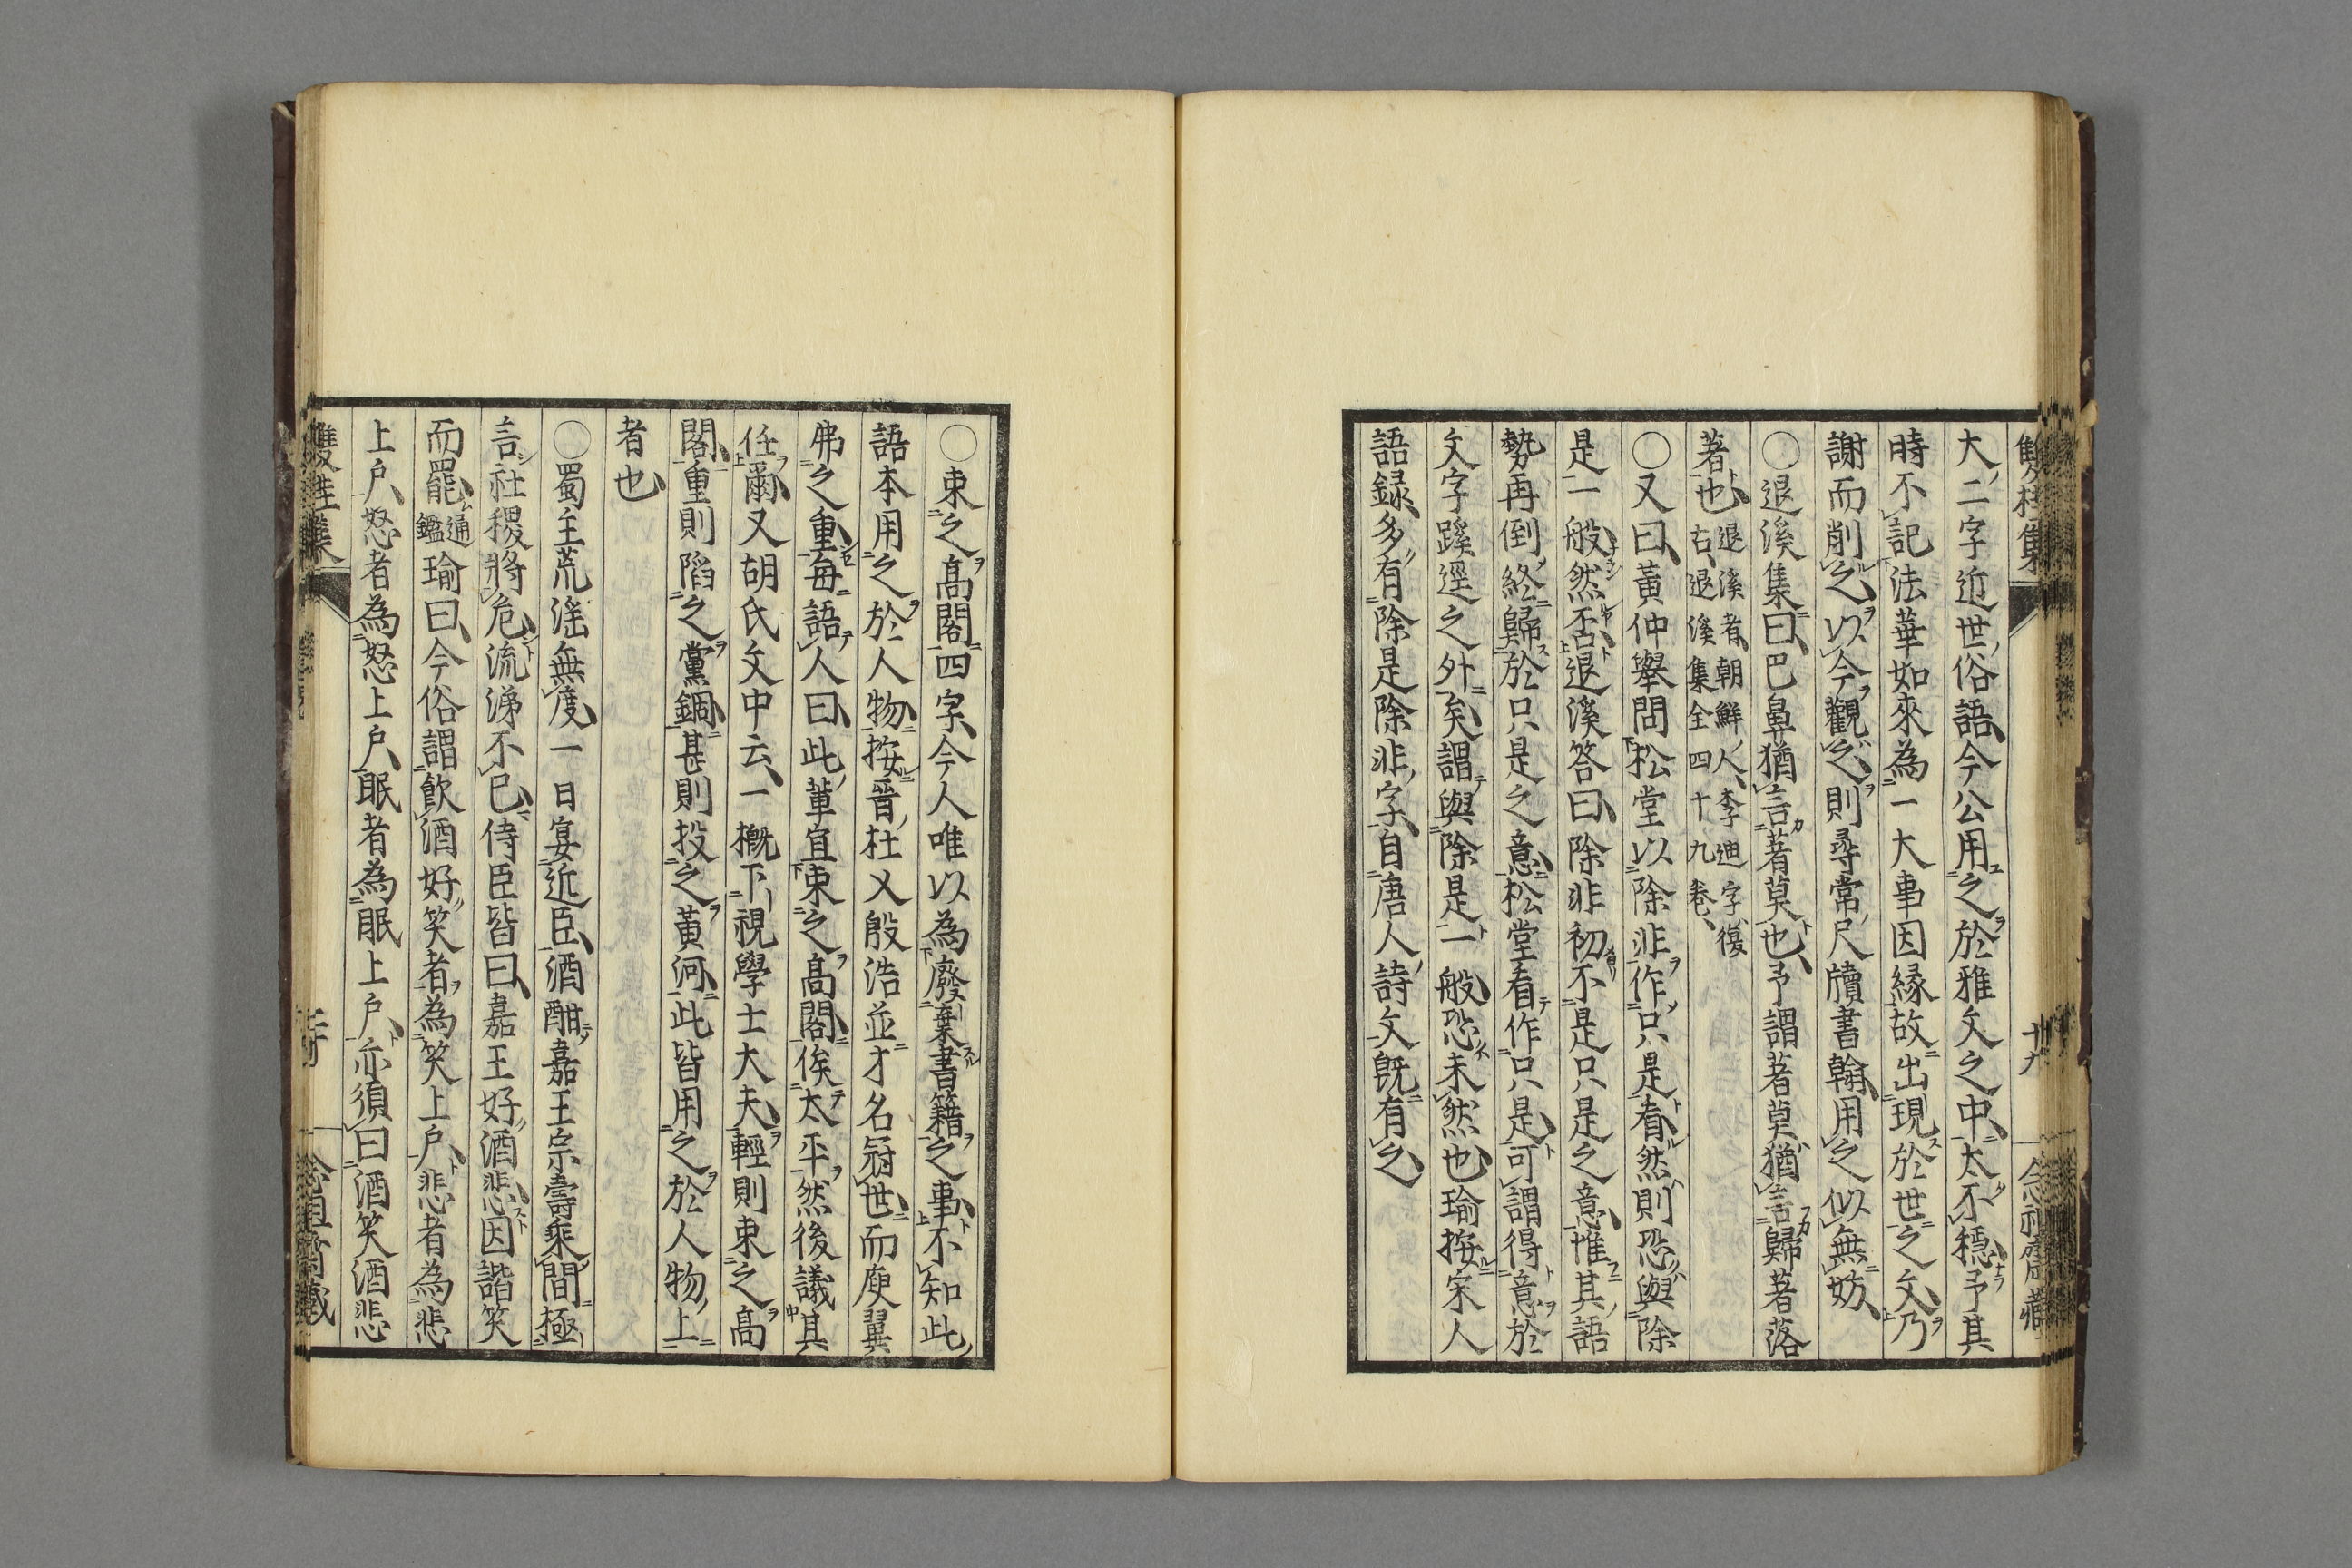 雙桂集
十九
念祖齋藏
大二字近世俗語今公用之於雅文之中太不穩予其
時不記法華如來為一大事因縁故出現於世之文乃
謝而削之以今觀之則尋常尺牘書翰用之似無妨
〇退溪集曰巴鼻猶言著莫也予謂著莫猶言歸著落
著也退溪者朝鮮人李迪字復
古退溪集全四十九卷
〇又曰黃仲舉問松堂以除非作只是看然則恐與除
是一般然否退溪答曰除非初不是只是之意惟其語
勢再倒終歸於只是之意松堂看作只是可謂得意於
文字蹊逕之外矣謂與除是一般恐未然也瑜按宋人
語録多有除是除非字自唐人詩文既有之
〇束之高閣四字今人唯以為廢棄書籍之事不知此
語本用之於人物按晉杜乂殷浩並才名冠世而庾翼
弗之重每語人曰此輩宜束之高閣俟太平然後議其
任爾又胡氏文中云一概下視學士大夫輕則束之高
閣重則陷之黨錮甚則投之黃河此皆用之於人物上
者也
〇蜀主荒滛無度一日宴近臣酒酣嘉王宗壽乘間極
言社稷將危流涕不已侍臣皆曰嘉王好酒悲因諧笑
而罷通
鑑瑜曰今俗謂飲酒好笑者為笑上戶悲者為悲
上戶怒者為怒上戶眠者為眠上戶亦須曰酒笑酒悲
雙桂集
念祖齋藏